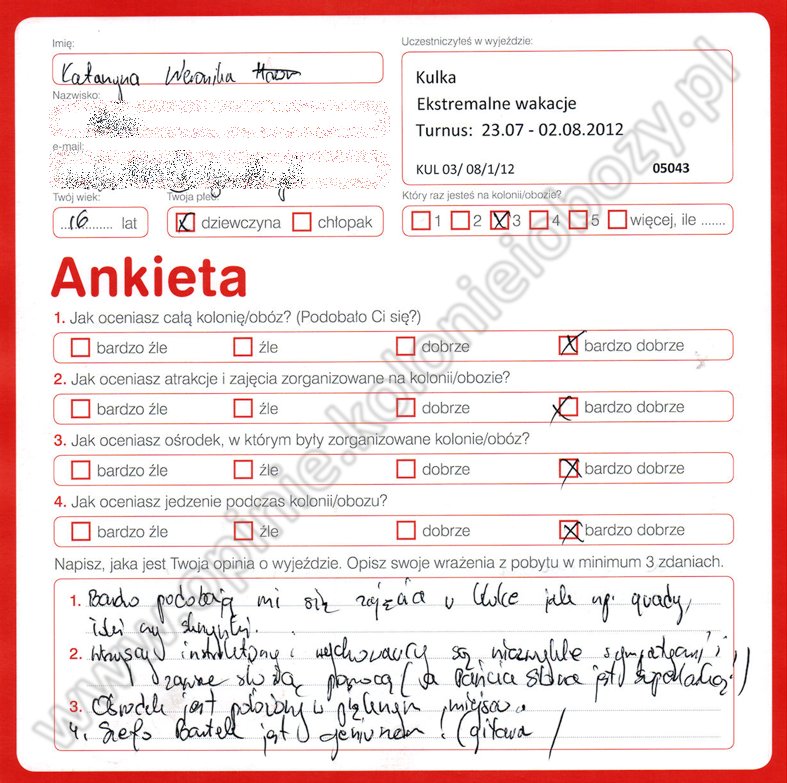 Imię:
Katarzyna Weronika
Uczestniczyłeś w wyjeździe:
Kulka
Ekstremalne wakacje
Turnus: 23.07 - 02.08.2012
KUL 03/ 08/1/12 05043
Nazwisko:
e-mail:
Twój wiek:
16 lat
Twoja płeć:
dziewczyna chłopak
Który raz jesteś na kolonii/obozie?
1 2 3 4 5 więcej, ile .......
Ankieta
1. Jak oceniasz całą kolonię/obóz? (Podobało Ci się?)
bardzo źle źle dobrze bardzo dobrze
2. Jak oceniasz atrakcje i zajęcia zorganizowane na kolonii/obozie?
bardzo źle źle dobrze bardzo dobrze
3. Jak oceniasz ośrodek, w którym były zorganizowane kolonie/obóz?
bardzo źle źle dobrze bardzo dobrze
4. Jak oceniasz jedzenie podczas kolonii/obozu?
bardzo źle źle dobrze bardzo dobrze
Napisz, jaka jest Twoja opinia o wyjeździe. Opisz swoje wrażenia z pobytu w minimum 3 zdaniach.
1. Bardzo podobają mi się zajęcia w Kulce jak np. quady,
czy
2. Wszyscy instruktorzy i wychowawcy są niezwykle sympatyczni i
zawsze służą pomocą (a Pańcia Sława jest
3. Ośrodek jest położony w pięknym miejscu.
4. Szefo Bartek jest geniuszem! (gitara)
www.opinie.kolonieiobozy.pl